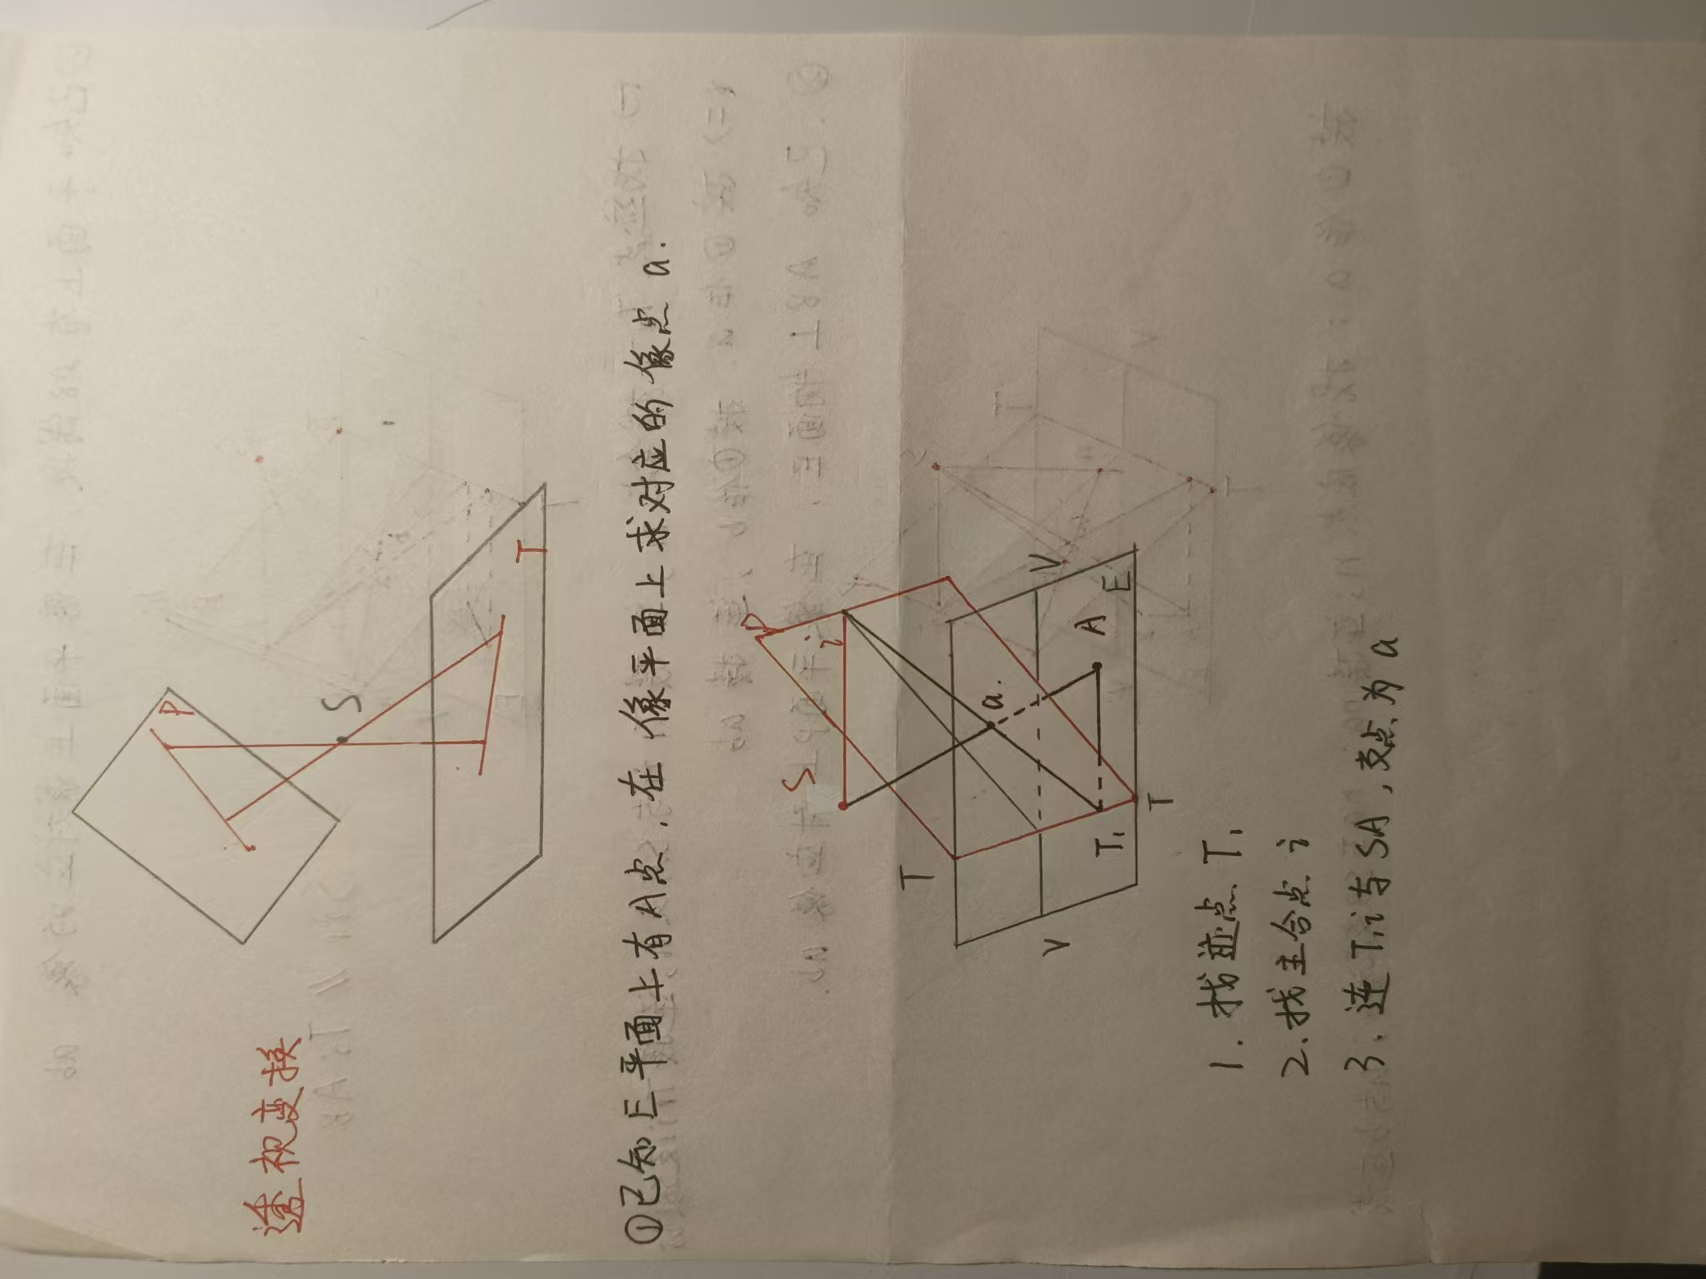 透视变换
P
S
T
①已知E平面上有A点,在像平面上求对应的像点a.
S
P
i
T
a.
V
V
A
E
T₁
T
1.找迹点T₁
2.找主合点i
3.连T₁i与SA,交点为a